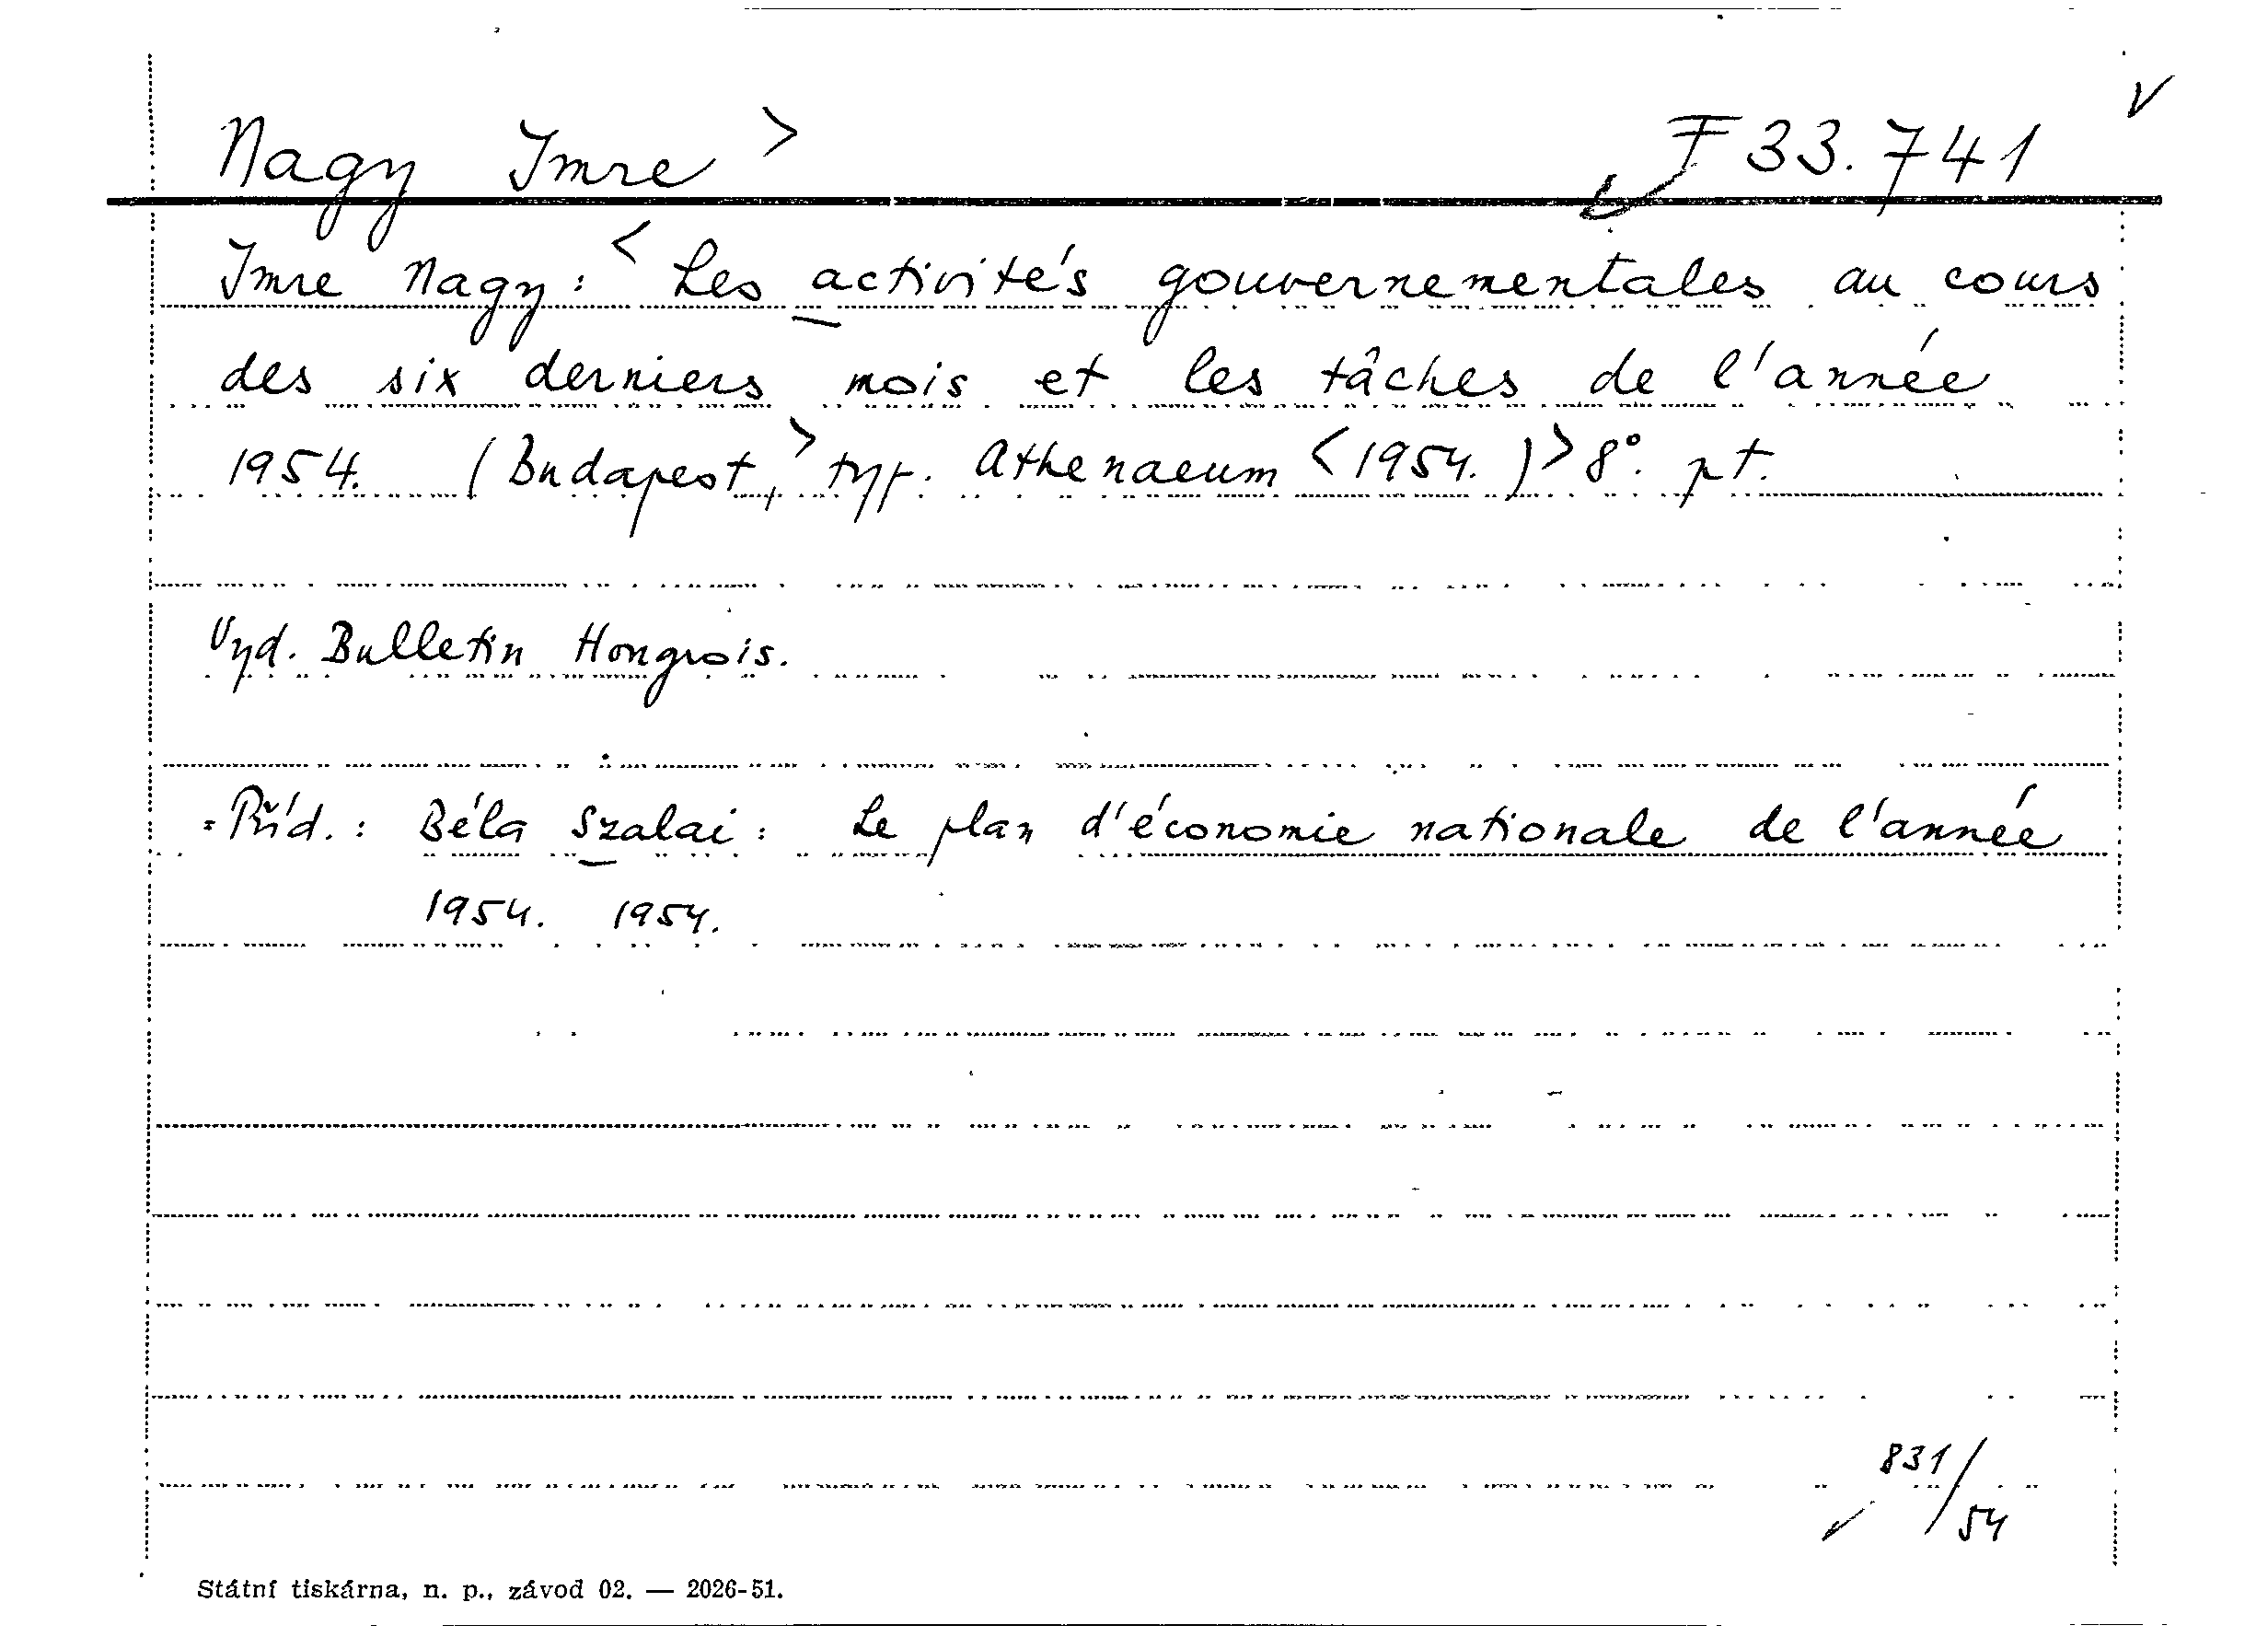 Nagy Imre > F 33.741 √
Imre Nagy: < Les activités gouvernementales au cours
des six derniers mois et les tâches de l'année
1954. (Budapest, > typ. Athenaeum < 1954.) > 8°. pt.
Vyd. Bulletin Hongrois.
= Příd.: Béla Szalai: Le plan d'économie nationale de l'année
1954. 1954.
831/54
Státní tiskárna, n. p., závod 02. — 2026-51.